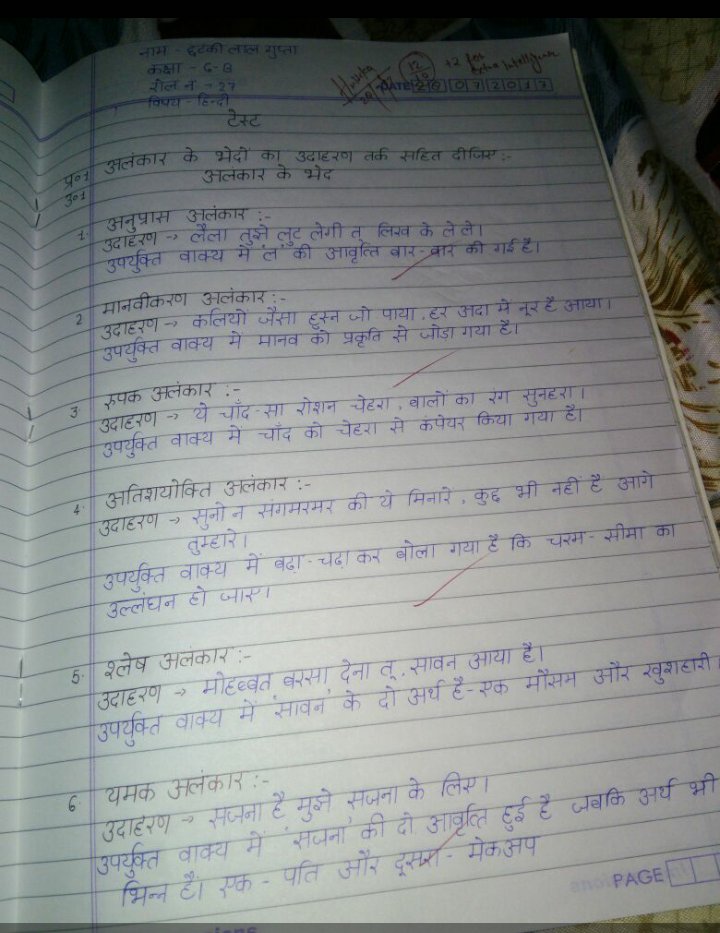 नाम - छटकी लाल गुप्ता
कक्षा - 6-B
रोल नं - 27
विषय - हिन्दी
12
10
+2 for
extra Intelligence
DATE 28 07 2017
टेस्ट
प्र०1 अलंकार के भेदों का उदाहरण तर्क सहित दीजिए:-
उ०1 अलंकार के भेद
1. अनुप्रास अलंकार :-
उदाहरण → लैला तुझे लुट लेगी तू लिख के ले ले।
उपर्युक्त वाक्य में 'ल' की आवृत्ति बार-बार की गई है।
2 मानवीकरण अलंकार :-
उदाहरण → कलियों जैसा हुस्न जो पाया, हर अदा में नूर है आया।
उपर्युक्त वाक्य में मानव को प्रकृति से जोडा गया है।
3. रुपक अलंकार :-
उदाहरण → ये चाँद-सा रोशन चेहरा, बालों का रंग सुनहरा।
उपर्युक्त वाक्य में चाँद को चेहरा से कंपेयर किया गया है।
4. अतिशयोक्ति अलंकार :-
उदाहरण → सुनो न संगमरमर की ये मिनारे, कुछ भी नहीं है आगे
तुम्हारे।
उपर्युक्त वाक्य में बढ़ा-चढ़ा कर बोला गया है कि चरम-सीमा का
उल्लंघन हो जाए।
5. श्लेष अलंकार :-
उदाहरण → मोहब्बत बरसा देना तू, सावन आया है।
उपर्युक्त वाक्य में 'सावन' के दो अर्थ है - एक मौसम और खुशहारी
6. यमक अलंकार :-
उदाहरण → सजना है मुझे सजना के लिए।
उपर्युक्त वाक्य में 'सजना' की दो आवृत्ति हुई है जबकि अर्थ भी
भिन्न है। एक - पति और दूसरा - मेकअप
PAGE